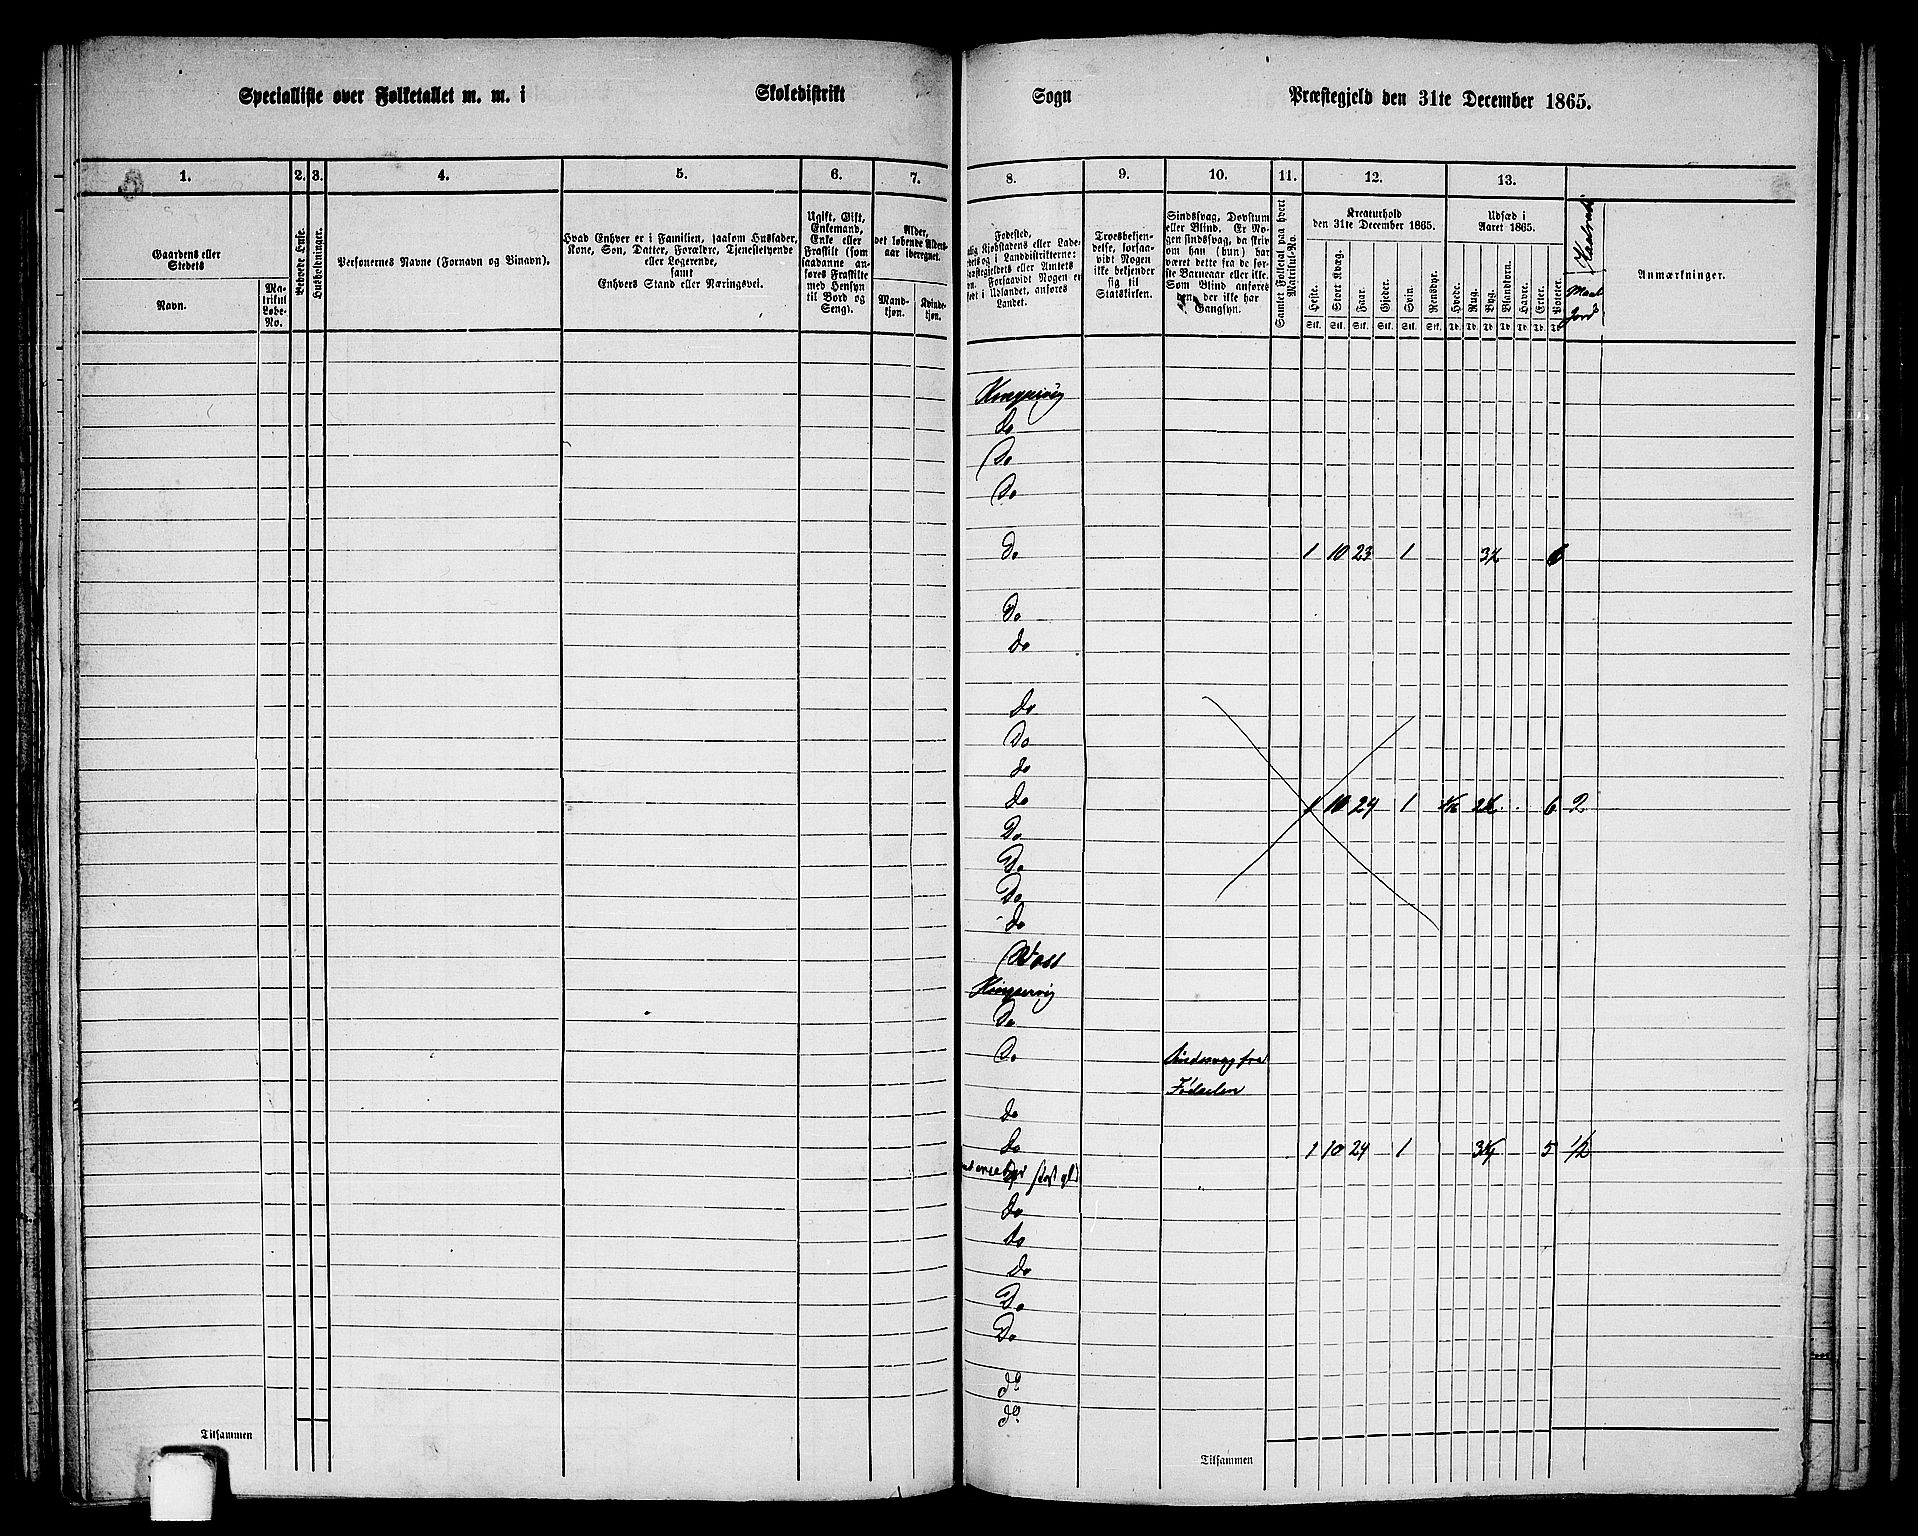 Specialliste over Folketallet m. m. i Skoledistrikt Sogn Præstegjeld den 31te December 1865.
1. 2. 3. 4. 5. 6. 7. 8. 9. 10. 11. 12. 13.
Gaardens eller Stedets
Navn.
Matrikul Løbe-No.
Beboede Huse.
Husholdninger.
Personernes Navne (Fornavn og Binavn).
Hvad Enhver er i Familien, saasom Husfader,
Kone, Søn, Datter, Forældre, Tjenestetyende
eller Logerende,
samt
Enhvers Stand eller Næringsvei.
Ugift, Gift,
Enkemand,
Enke eller
Fraskilt (som
saadanne an-
føres Fraskilte
med Hensyn
til Bord og
Seng).
Alder,
det løbende Alders-
aar iberegnet.
Mand-
kjøn.
Kvinde-
kjøn.
Fødested,
Kjøbstadens eller Lade-
og i Landdistrikterne:
ræstegjeldets eller Amtets
n. Forsaavidt Nogen er
født i Udlandet, anføres
Landet.
Troesbekjen-
delse, forsaa-
vidt Nogen
ikke bekjender
sig til
Statskirken.
Sindssvag, Døvstum
eller Blind. Er No-
gen sindssvag, da skri-
ves om han (hun) har
været dette fra de før-
ste Barneaar eller ikke.
Som Blind anføres
den, der ikke har
Gangsyn.
Samlet Folketal paa hvert Matrikul-No.
Kreaturhold
den 31te December 1865.
Heste. Stort Kvæg. Faar. Gjeder. Svin. Rensdyr.
Stk. Stk. Stk. Stk. Stk. Stk.
Udsæd i
Aaret 1865.
Hvede. Rug. Byg. Blandkorn. Havre. Erter. Poteter.
Td. Td. Td. Td. Td. Td. Td.
Anmærkninger.
do
Do
Do
Do 1 10 23 1 6
Do
do
do
Do
do
do 1 10 24 1 6 2
Do
Do
Do
do
Voss
Do
Do Sindssvag fra
Fødselen
do
do 1 10 24 1 5 1/2
do
do
do
Do
Do
do
do
Tilsammen Tilsammen